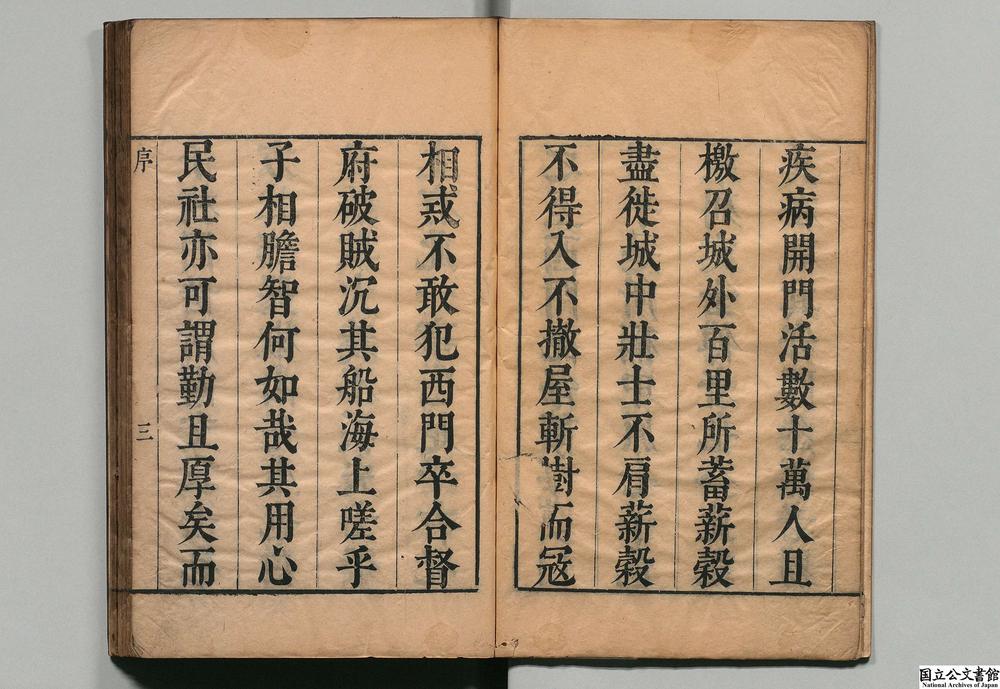 疾病開門活數十萬人且
檄召城外百里所蓄薪穀
盡徙城中壯士不肩薪穀
不得入不撤屋斬樹而冦
相戒不敢犯西門卒合督
府破賊沉其船海上嗟乎
子相膽智何如哉其用心
民社亦可謂勤且厚矣而
序
三
国立公文書館
National Archives of Japan